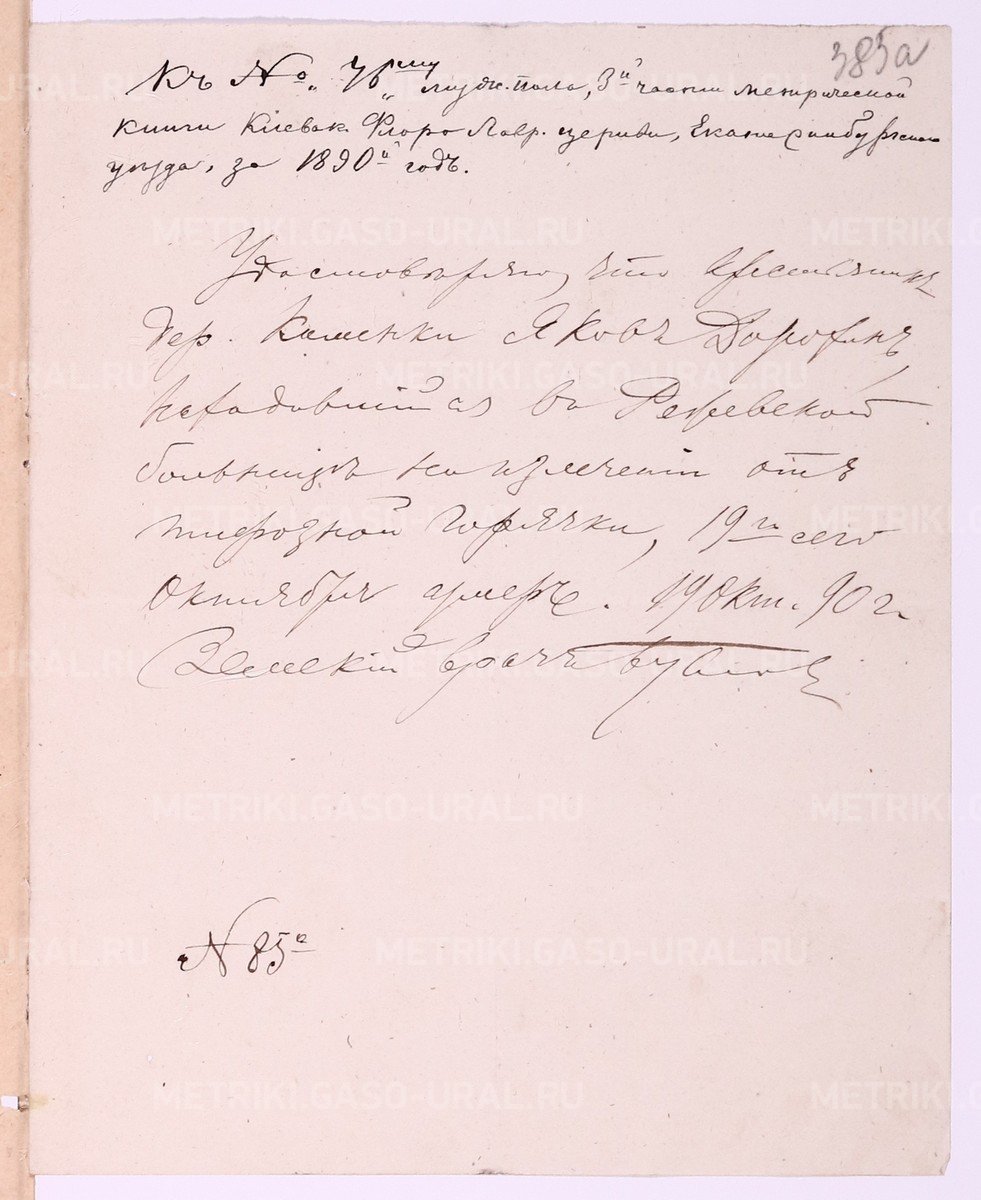 385а
Къ № „76„ му мужск. пола, 3й части метрической
книги Клевак. Флоро Лавр. церкви, Екатеринбургскаго
уѣзда, за 1890й годъ.
Удостовѣряю, что крестьянинъ
дер. Каменки Яковъ
находившійся въ Режевской
больницѣ на излеченіи отъ
тифозной горячки, 19го сего
Октября умеръ. 19 Окт. 90 г.
Земскій врачъ
№ 85а
METRIKI.GASO-URAL.RU